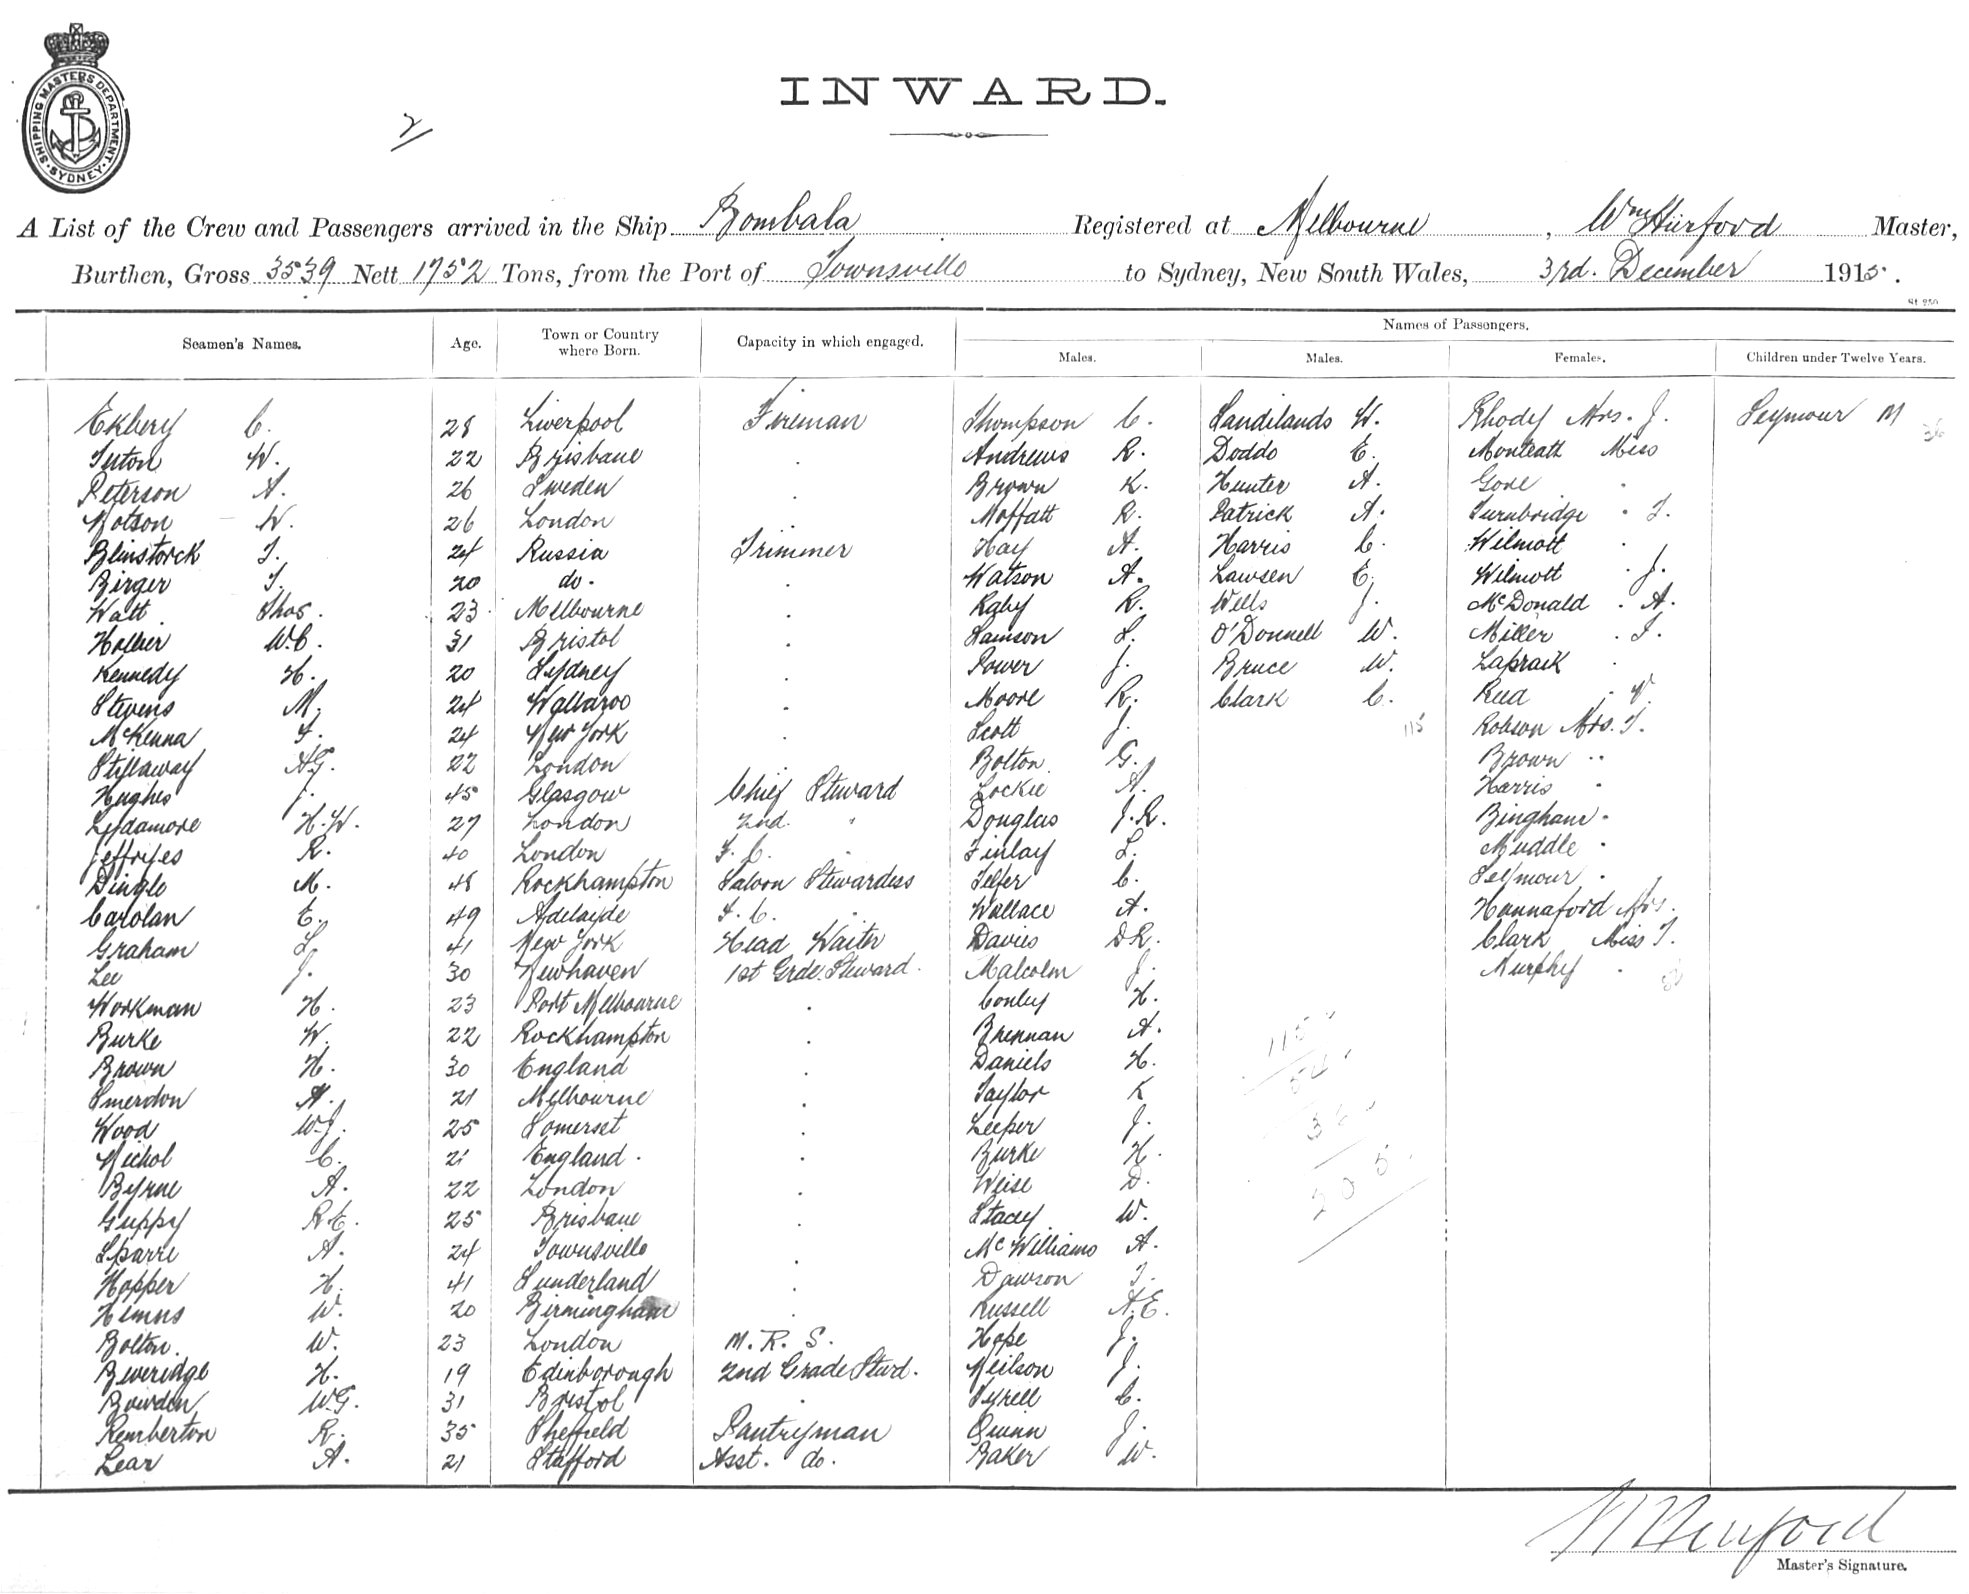 SHIPPING MASTERS DEPARTMENT
SYDNEY
INWARD.
2
A List of the Crew and Passengers arrived in the Ship Bombala Registered at Melbourne, Wm Hurford Master,
Burthen, Gross 3539 Nett 1752 Tons, from the Port of Townsville to Sydney, New South Wales, 3rd. December 1915.
Names of Passengers.
Seamen's Names. Age. Town or Country where Born. Capacity in which engaged. Males. Males. Females. Children under Twelve Years.
Ekbery C. 28 Liverpool Fireman Thompson C. Sandilands W. Rhody Mrs. J. Seymour M 36
Tuton W. 22 Brisbane . Andrews R. Dodds E. Monteath Miss
Peterson A. 26 Sweden . Brown K. Hunter A. Gore .
Motson W. 26 London . Moffatt R. Patrick A. Turnbridge . T.
Blinstorck T. 24 Russia Trimmer Hay A. Harris C. Wilmott .
Birger T. 20 do. . Watson A. Lawsen E. Wilmott . J.
Watt Thos. 23 Melbourne . Raby R. Wells J. McDonald . A.
Hollier W.C. 31 Bristol . Samson S. O'Donnell W. Miller . T.
Kennedy H. 20 Sydney . Power J. Bruce W. Lapraik .
Stevens M. 24 Wallaroo . Moore R. Clark C. Reed . V.
McKenna F. 24 New York . Scott J. 115 Robson Mrs. T.
Stillaway A.G. 22 London . Bolton G. Brown ..
Hughes J. 45 Glasgow Chief Steward Lockie A. Harris .
Lydamore H.W. 27 London 2nd " Douglas J.R. Bingham .
Jeffryes R. 40 London F.C. " Finlay L. Muddle .
Dingle M. 48 Rockhampton Saloon Stewardess Telfer C. Seymour .
Carolan E. 49 Adelaide F.C. " Wallace A. Hannaford Mrs.
Graham L. 41 New York Head Waiter Davies D.R. Clark Miss T.
Lee J. 30 Newhaven 1st Grde. Steward. Malcolm J. Murphy .
Workman H. 23 Port Melbourne . Conley H.
Burke W. 22 Rockhampton . Brennan A.
Brown H. 30 England . Daniels H.
Smerdon A. 21 Melbourne . Taylor K
Wood W.J. 25 Somerset . Leeper J.
Nichol C. 21 England . . Burke H.
Byrne A. 22 London . Weise D.
Guppy R.E. 25 Brisbane . Stacey W.
Sparre A. 24 Townsville . McWilliams A.
Hopper H. 41 Sunderland . Dawson T.
Hemns W. 20 Birmingham . Russell A.E.
Bolton. W. 23 London M.R.S. Hope J.
Beveridge H. 19 Edinborough 2nd Grade Stwd. Neilson J.
Bowden W.G. 31 Bristol . Tyrell C.
Pemberton R. 35 Sheffield Pantryman Quinn J.
Lear A. 21 Stafford Asst. do. Baker W.
115
54
36
205
W Hurford
Master's Signature.